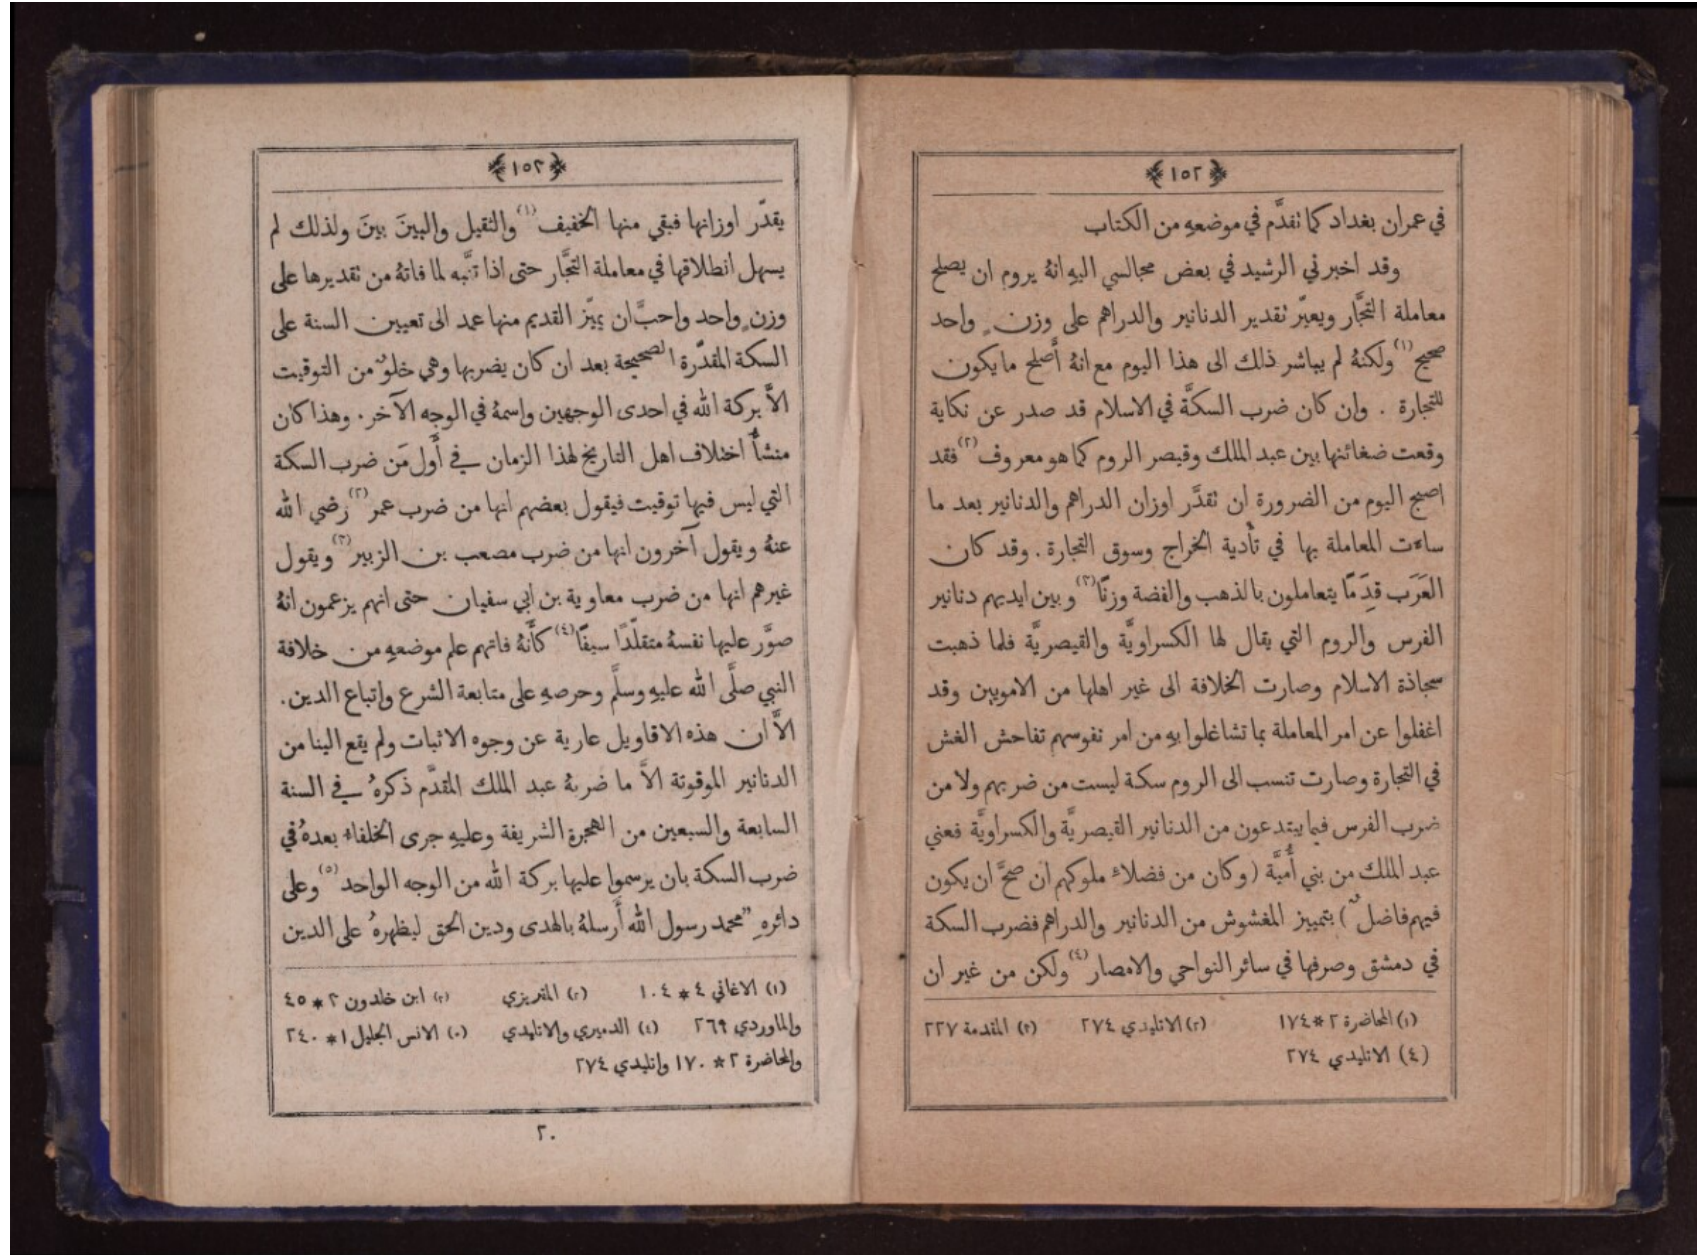 ﴿١٥٢﴾
في عمران بغداد كما نقدَّم في موضعهِ من الكتاب
وقد اخبرني الرشيد في بعض مجالسي اليهِ انهُ يروم ان يصلح
معاملة التجَّار ويعيّر نقدير الدنانير والدراهم على وزنٍ واحد
صحيح (١) ولكنهُ لم يباشر ذلك الى هذا اليوم مع انهُ أَصلح ما يكون
للتجارة . وان كان ضرب السكَّة في الاسلام قد صدر عن نكاية
وقعت ضغائنها بين عبد الملك وقيصر الروم كما هو معروف (٢) فقد
اصبح اليوم من الضرورة ان نقدَّر اوزان الدراهم والدنانير بعد ما
ساءت المعاملة بها في تأدية الخراج وسوق التجارة . وقد كان
العَرَب قِدَمًا يتعاملون بالذهب والفضة وزنًا (٣) وبين ايديهم دنانير
الفرس والروم التي يقال لها الكسراويَّة والقيصريَّة فلما ذهبت
سجاذة الاسلام وصارت الخلافة الى غير اهلها من الامويين وقد
اغفلوا عن امر المعاملة بما تشاغلوا بهِ من امر نفوسهم تفاحش الغش
في التجارة وصارت تنسب الى الروم سكة ليست من ضربهم ولا من
ضرب الفرس فيما يبتدعون من الدنانير القيصريَّة والكسراويَّة فعني
عبد الملك من بني أُميَّة (وكان من فضلاءِ ملوكهم ان صحَّ ان يكون
فيهم فاضلٌ) بتمييز المغشوش من الدنانير والدراهم فضرب السكة
في دمشق وصرفها في سائر النواحي والامصار (٤) ولكن من غير ان
(١) المحاضرة ٢*١٧٤ (٢) الاتليدي ٢٧٤ (٣) المقدمة ٢٢٧
(٤) الاتليدي ٢٧٤
﴿١٥٣﴾
يقدّر اوزانها فبقي منها الخفيف (١) والثقيل والبينَ بينَ ولذلك لم
يسهل انطلاقها في معاملة التجَّار حتى اذا تنَّبه لما فاتهُ من نقديرها على
وزنٍ واحد واحبَّ ان يميّز القديم منها عمد الى تعيين السنة على
السكة المقدّرة الصحيحة بعد ان كان يضربها وهي خلوٌ من التوقيت
الاَّ بركة الله في احدى الوجهين واسمهُ في الوجه الآخر . وهذا كان
منشأُ اختلاف اهل التاريخ لهذا الزمان في أَول مَن ضرب السكة
التي ليس فيها توقيت فيقول بعضهم انها من ضرب عمر (٢) رضي الله
عنهُ ويقول آخرون انها من ضرب مصعب بن الزبير (٣) ويقول
غيرهم انها من ضرب معاوية بن ابي سفيان حتى انهم يزعمون انهُ
صوَّر عليها نفسهُ متقلّدًا سيفًا (٤) كأَنهُ فاتهم علم موضعهِ من خلافة
النبي صلَّى الله عليهِ وسلَّم وحرصهِ على متابعة الشرع واتباع الدين .
الاَّ ان هذه الاقاويل عارية عن وجوه الاثبات ولم يقع الينا من
الدنانير الموقوتة الاَّ ما ضربهُ عبد الملك المقدَّم ذكرهُ في السنة
السابعة والسبعين من الهجرة الشريفة وعليهِ جرى الخلفاءُ بعدهُ في
ضرب السكة بان يرسموا عليها بركة الله من الوجه الواحد (٥) وعلى
دائرهِ "محمد رسول الله أَرسلهُ بالهدى ودين الحق ليظهرهُ على الدين
(١) الاغاني ٤*١٠٤ (٢) المقريزي (٣) ابن خلدون ٢*٤٥
والماوردي ٢٦٩ (٤) الدميري والاتليدي (٥) الانس الجليل ١*٢٤٠
والمحاضرة ٢*١٧٠ واتليدي ٢٧٤
٢٠